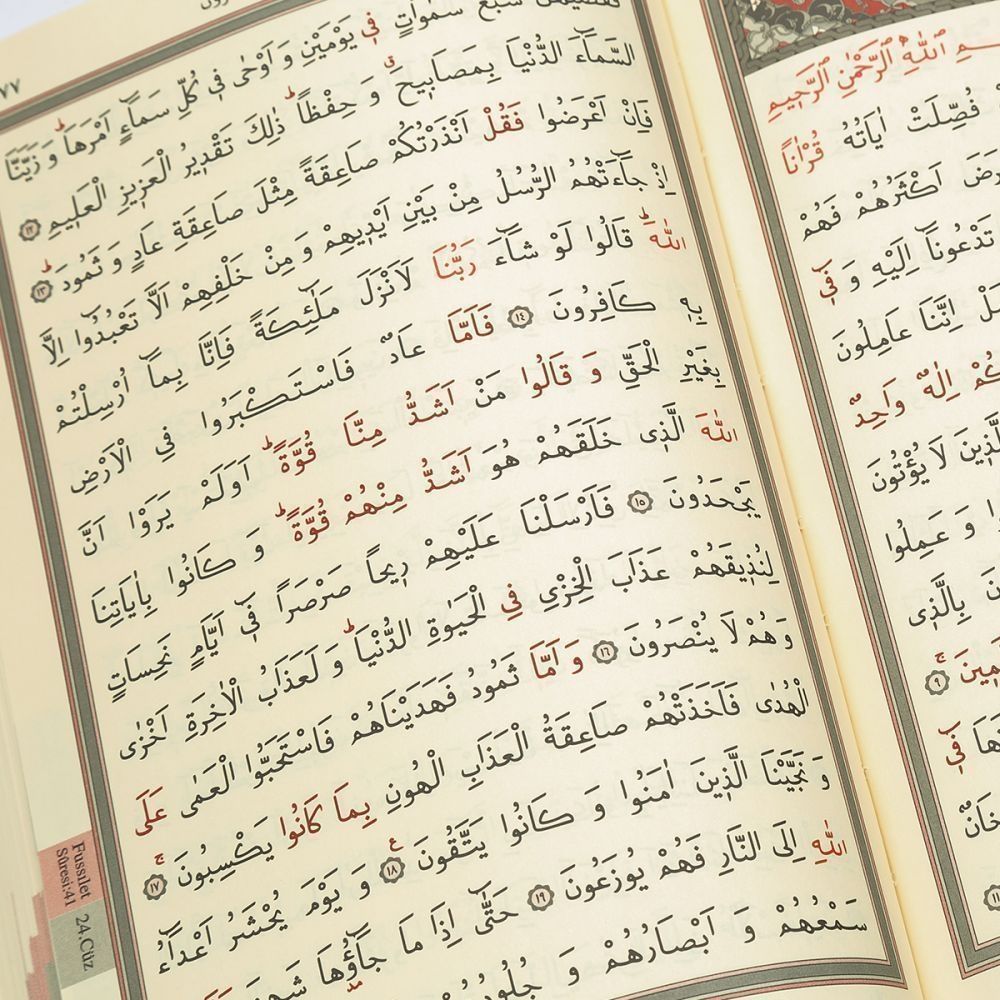 اللّٰهِ الرَّحْمٰنِ الرَّحٖيمِ
فُصِّلَتْ اٰيَاتُهُ قُرْاٰناً
اَكْثَرُهُمْ فَهُمْ
تَدْعُونَٓا اِلَيْهِ وَ فٖٓى
اِنَّنَا عَامِلُونَ
اِلٰهٌ وَاحِدٌ
لَا يُؤْتُونَ
وَ عَمِلُوا
بِالَّذٖى
٩
فٖى
٧٧
سَبْعَ سَمٰوَاتٍ فٖى يَوْمَيْنِ وَ اَوْحٰى فٖى كُلِّ سَمَٓاءٍ اَمْرَهَاؕ وَ زَيَّنَّا
السَّمَٓاءَ الدُّنْيَا بِمَصَابٖيحَࣗ وَ حِفْظاًؕ ذٰلِكَ تَقْدٖيرُ الْعَزٖيزِ الْعَلٖيمِ ١٢
فَاِنْ اَعْرَضُوا فَقُلْ اَنْذَرْتُكُمْ صَاعِقَةً مِثْلَ صَاعِقَةِ عَادٍ وَ ثَمُودَؕ ١٣
اِذْ جَٓاءَتْهُمُ الرُّسُلُ مِنْ بَيْنِ اَيْدٖيهِمْ وَ مِنْ خَلْفِهِمْ اَلَّا تَعْبُدُٓوا اِلَّا
اللّٰهَؕ قَالُوا لَوْ شَٓاءَ رَبُّنَا لَاَنْزَلَ مَلٰٓئِكَةً فَاِنَّا بِمَٓا اُرْسِلْتُمْ
بِهٖ كَافِرُونَ ١٤ فَاَمَّا عَادٌ فَاسْتَكْبَرُوا فِى الْاَرْضِ
بِغَيْرِ الْحَقِّ وَ قَالُوا مَنْ اَشَدُّ مِنَّا قُوَّةًؕ اَوَلَمْ يَرَوْا اَنَّ
اللّٰهَ الَّذٖى خَلَقَهُمْ هُوَ اَشَدُّ مِنْهُمْ قُوَّةًؕ وَ كَانُوا بِاٰيَاتِنَا
يَجْحَدُونَ ١٥ فَاَرْسَلْنَا عَلَيْهِمْ رٖيحاً صَرْصَراً فٖٓى اَيَّامٍ نَحِسَاتٍ
لِنُذٖيقَهُمْ عَذَابَ الْخِزْىِ فِى الْحَيٰوةِ الدُّنْيَاؕ وَ لَعَذَابُ الْاٰخِرَةِ اَخْزٰى
وَهُمْ لَا يُنْصَرُونَ ١٦ وَ اَمَّا ثَمُودُ فَهَدَيْنَاهُمْ فَاسْتَحَبُّوا الْعَمٰى عَلَى
الْهُدٰى فَاَخَذَتْهُمْ صَاعِقَةُ الْعَذَابِ الْهُونِ بِمَا كَانُوا يَكْسِبُونَۚ ١٧
وَ نَجَّيْنَا الَّذٖينَ اٰمَنُوا وَ كَانُوا يَتَّقُونَ ١٨ وَ يَوْمَ يُحْشَرُ اَعْدَٓاءُ
اللّٰهِ اِلَى النَّارِ فَهُمْ يُوزَعُونَ ١٩ حَتّٰٓى اِذَا مَا جَٓاؤُ۫هَا
سَمْعُهُمْ وَ اَبْصَارُهُمْ وَ
Fussılet
Sûresi:41
24.Cüz